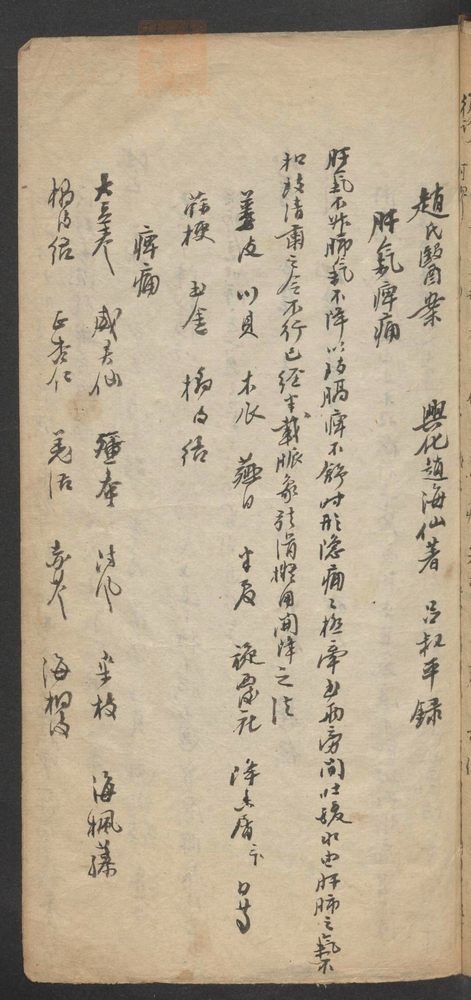 趙氏醫案 興化趙海仙著 呂叔平録
肝氣痺痛
肝氣不升肺氣不降以致膈痺不舒時形隱痛痛極牽及兩旁間吐酸水由肝肺之氣不
和致清肅之令不行已經半載脈象弦滑擬用開降之法
蔞皮 川貝 木 薤白 半夏 旋覆花 降香屑
蘇梗 玉金 橘白絡
痺痛
大豆卷 威灵仙 殭蚕 防风 桑枝 海楓藤
橘白絡 正杏仁 羌活 赤芍 海桐皮